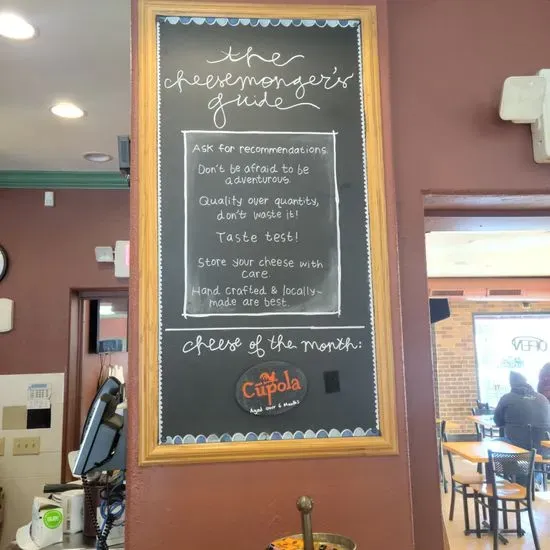 the
cheesemonger's
guide
Ask for recommendations.
Don't be afraid to be
adventurous.
Quality over quantity,
don't waste it!
Taste test!
Store your cheese with
care.
Hand crafted & locally-
made are best.
cheese of the month:
Cupola
Aged over 6 Months
OPEN